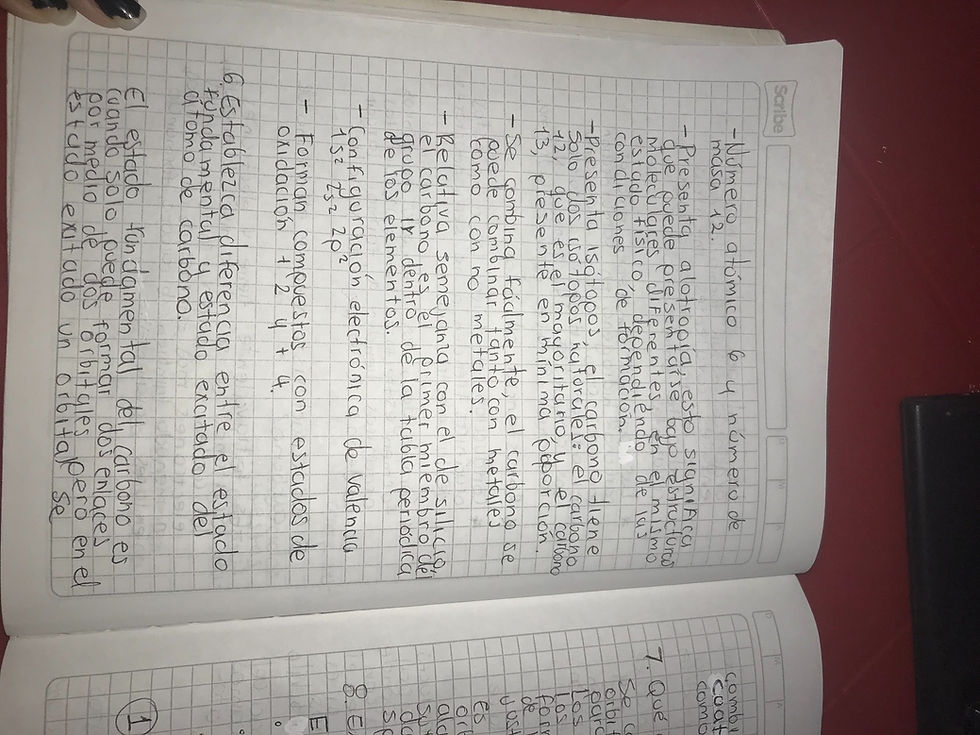 Scribe
- Número atómico 6 y número de
masa 12.
- Presenta alotropía, esto significa
que puede presentarse bajo estructuras
moleculares diferentes, en el mismo
estado físico, dependiendo de las
condiciones de formación.
- Presenta isótopos, el carbono tiene
solo dos isótopos naturales: el carbono
12, que es el mayoritario, y el carbono
13, presente en mínima proporción.
- Se combina fácilmente, el carbono se
puede combinar tanto con metales
como con no metales.
- Relativa semejanza con el de silicio,
el carbono es el primer miembro del
grupo IV dentro de la tabla periódica
de los elementos.
- Configuración electrónica de valencia
1s² 2s² 2p²
- Forman compuestos con estados de
oxidación +2 y +4.
6. Establezca diferencia entre el estado
fundamental y estado excitado del
átomo de carbono.
El estado fundamental del carbono es
cuando solo puede formar dos enlaces
por medio de dos orbitales pero en el
estado exitado un orbital se
combi
cuat
como
7. Que
Se
8. E
E
1